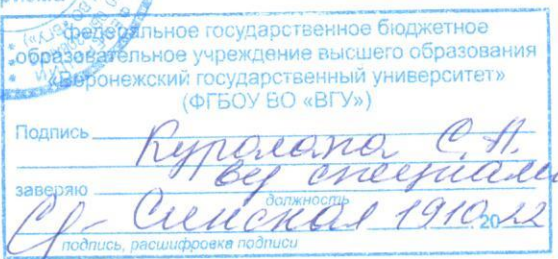 федеральное государственное бюджетное
образовательное учреждение высшего образования
«Воронежский государственный университет»
(ФГБОУ ВО «ВГУ»)
Подпись Куролапа С.А.
вед специали
заверяю
должность
Синская 19 10. 20 22
подпись, расшифровка подписи